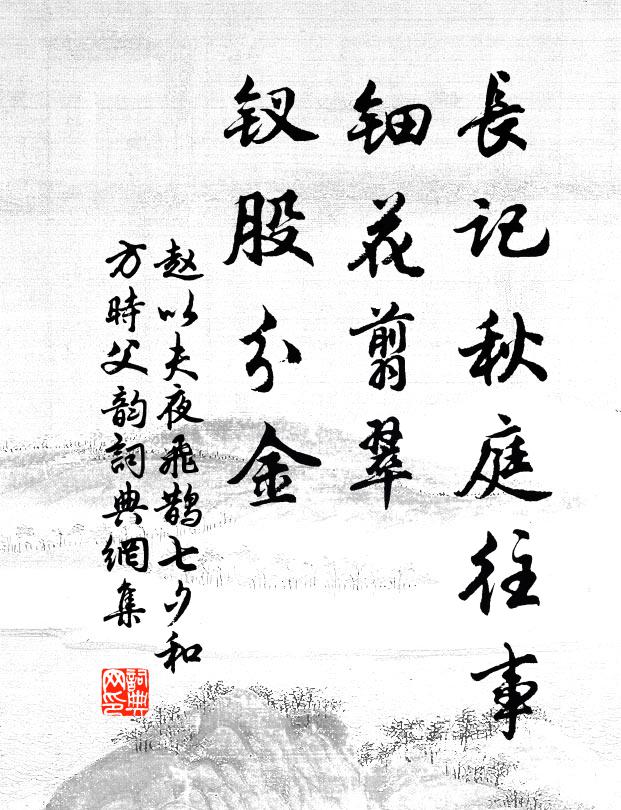 長记秋庭往事
钿花翦翠
钗股分金
赵以夫夜飛鹊七夕和
方時父韵詞典網集
詞典
网印